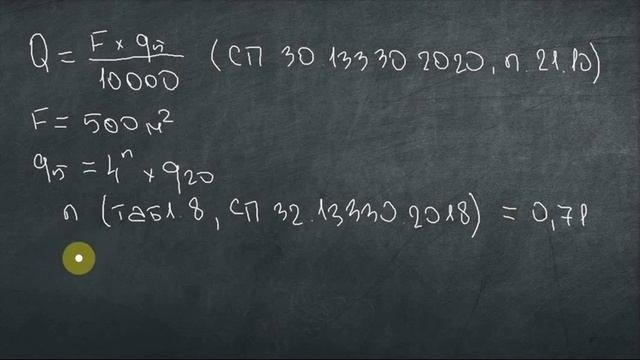 Q = F × q₅ / 10000 (СП 30 13330 2020, п. 21.10)
F = 500 м²
q₅ = 4ⁿ × q₂₀
n (табл. 8, СП 32.13330.2018) = 0,71